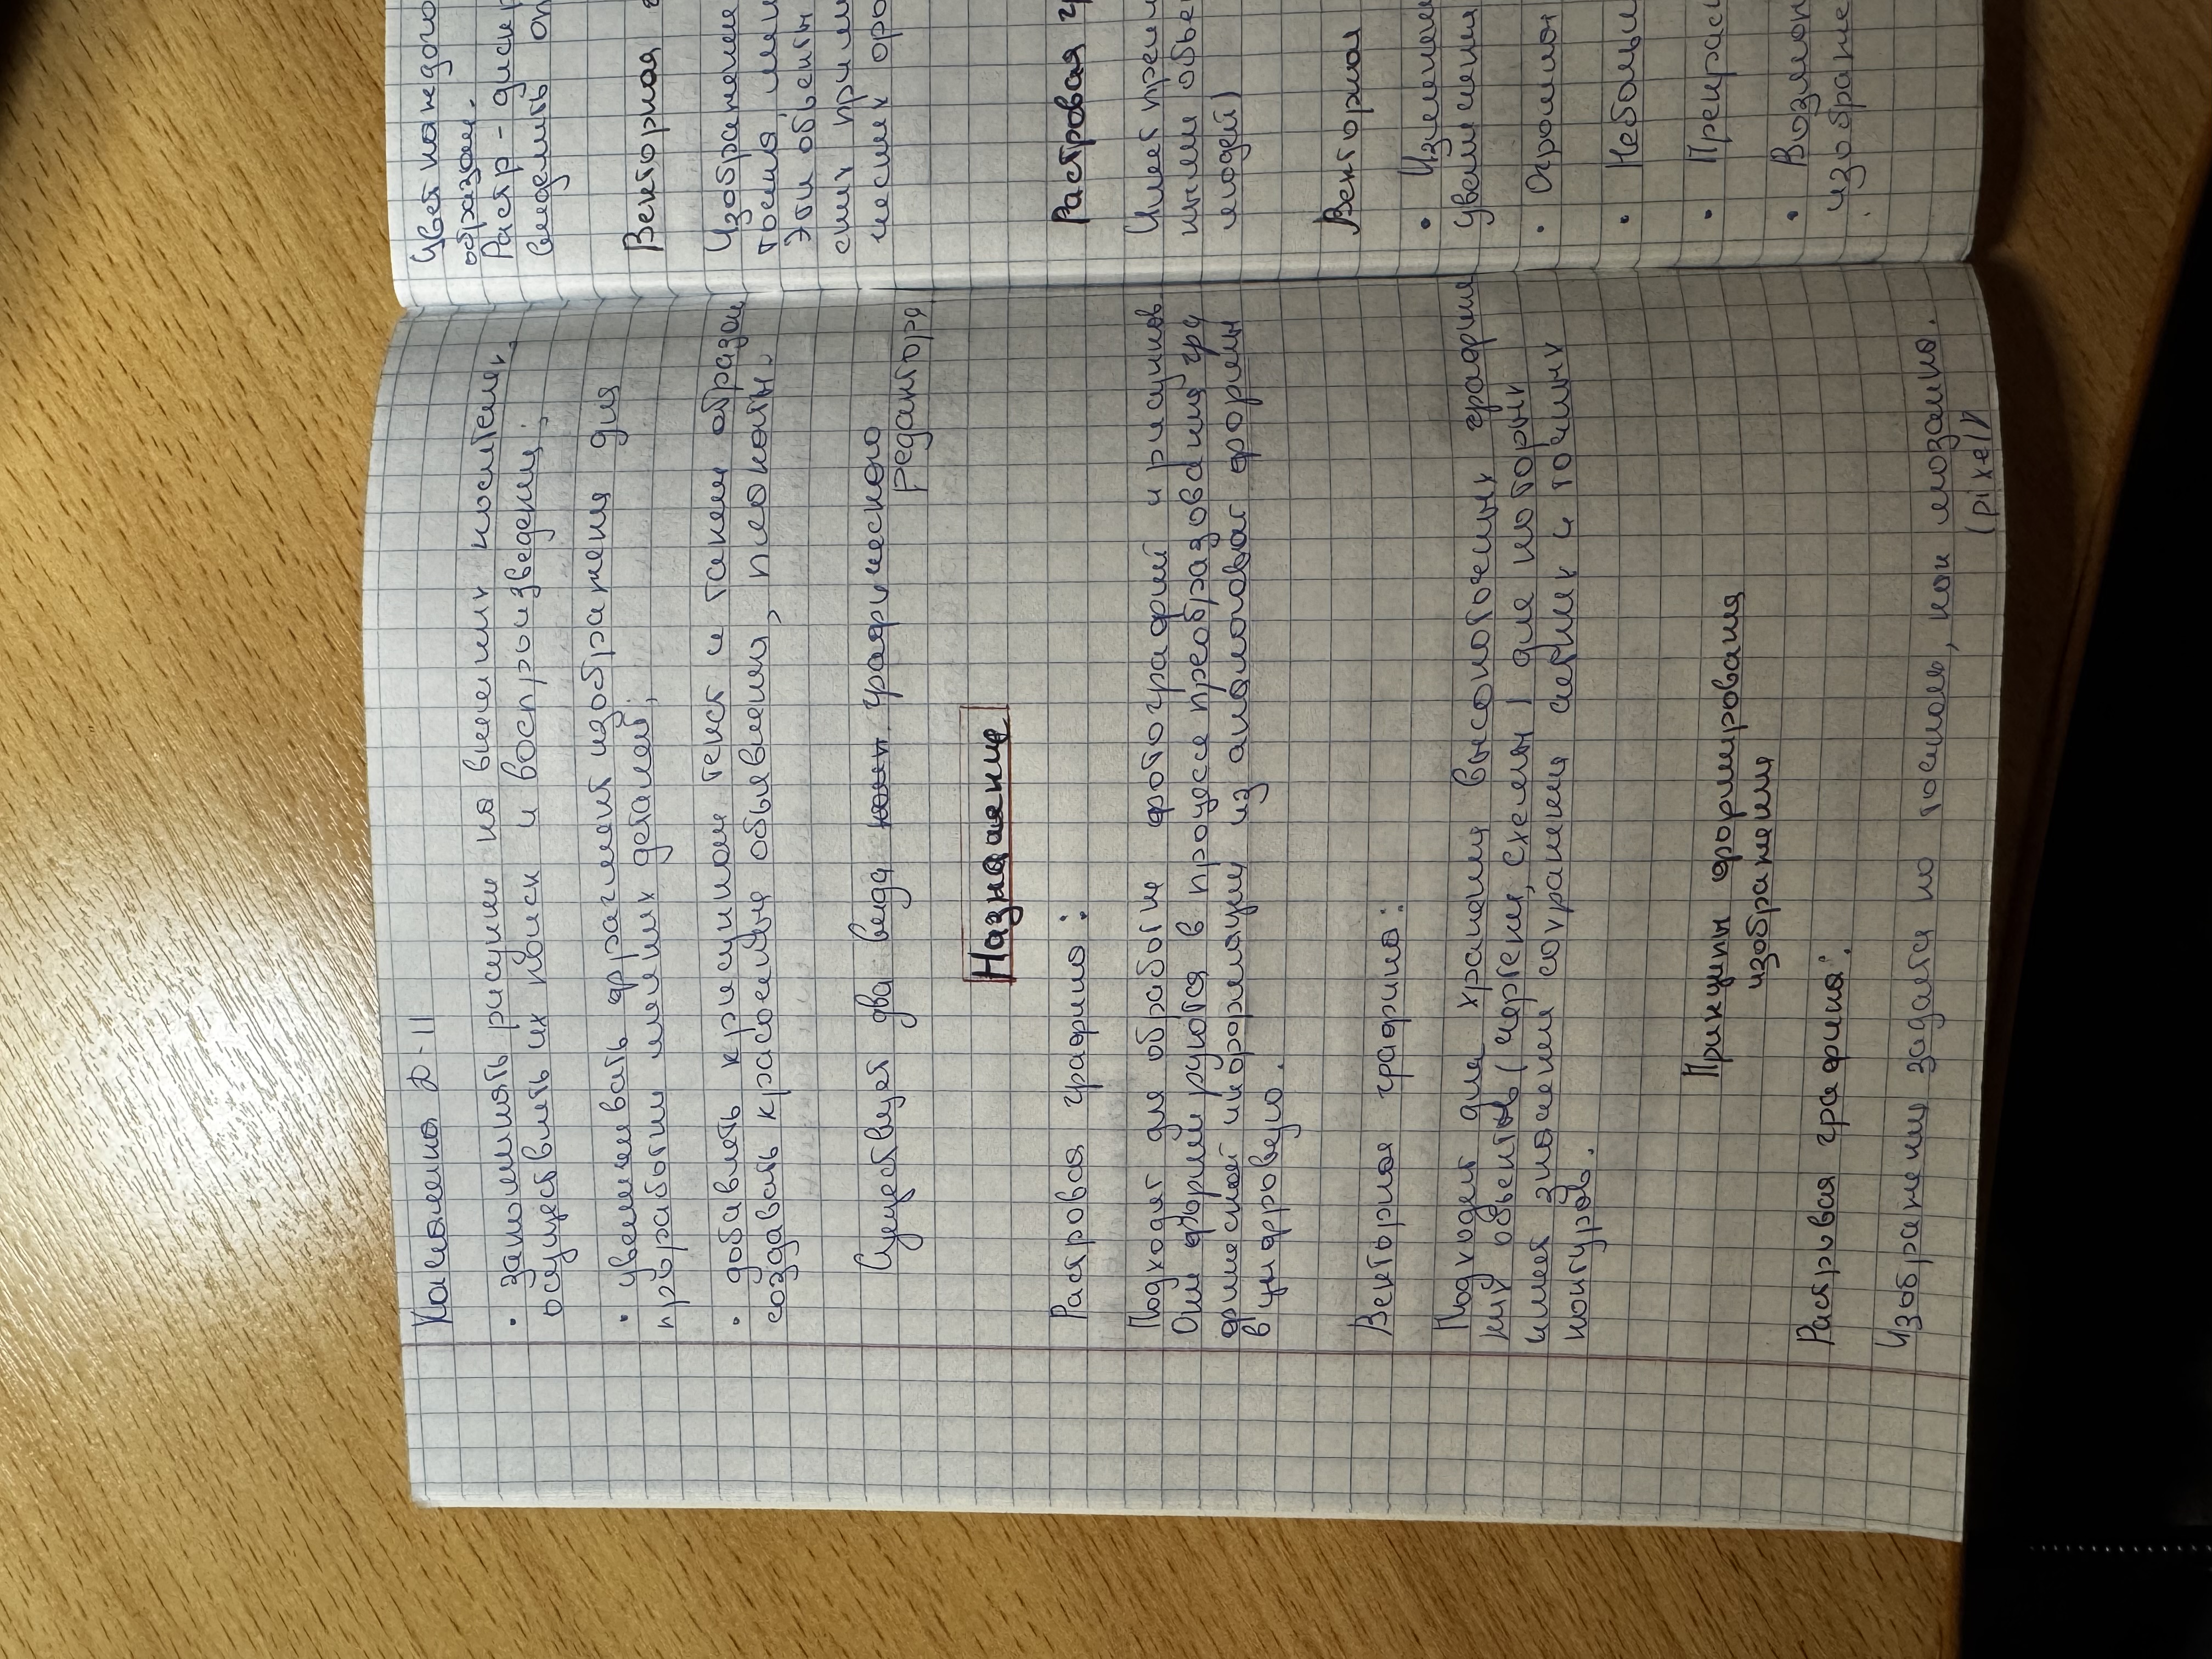 Касаемо 2-11
• запоминать рисунки на внешних носителях,
осуществлять их поиск и воспроизведения;
• увеличивать фрагмент изображения для
проработки мелких деталей;
• добавлять к рисункам текст и таким образом
создавать красочные объявления, плакаты.
Существует два вида графического
редактора
Назначение
Растровая графика:
Подходит для обработке фотографий и рисунков
Они формируются в процессе преобразования гра
фической информации из аналоговой формы
в цифровую.
Векторная графика:
Подходит для хранения высокоточных графиче
ких объектов (чертежи, схемы) для которых
имеет значение сохранения четких и точных
контуров.
Принципы формирования
изображения
Растровая графика:
Изображения задаётся по точкам, как мозаика.
(pixel)
Цвет каждого
образом.
Растр -
выделить
Векторная
Изображение
Эти объекты
Растровая
Имеет
людей)
Векторная
•
увеличения
•
•
•
•